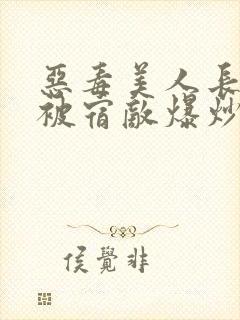 惡毒美人長
被宿敵爆炒
侯覺非